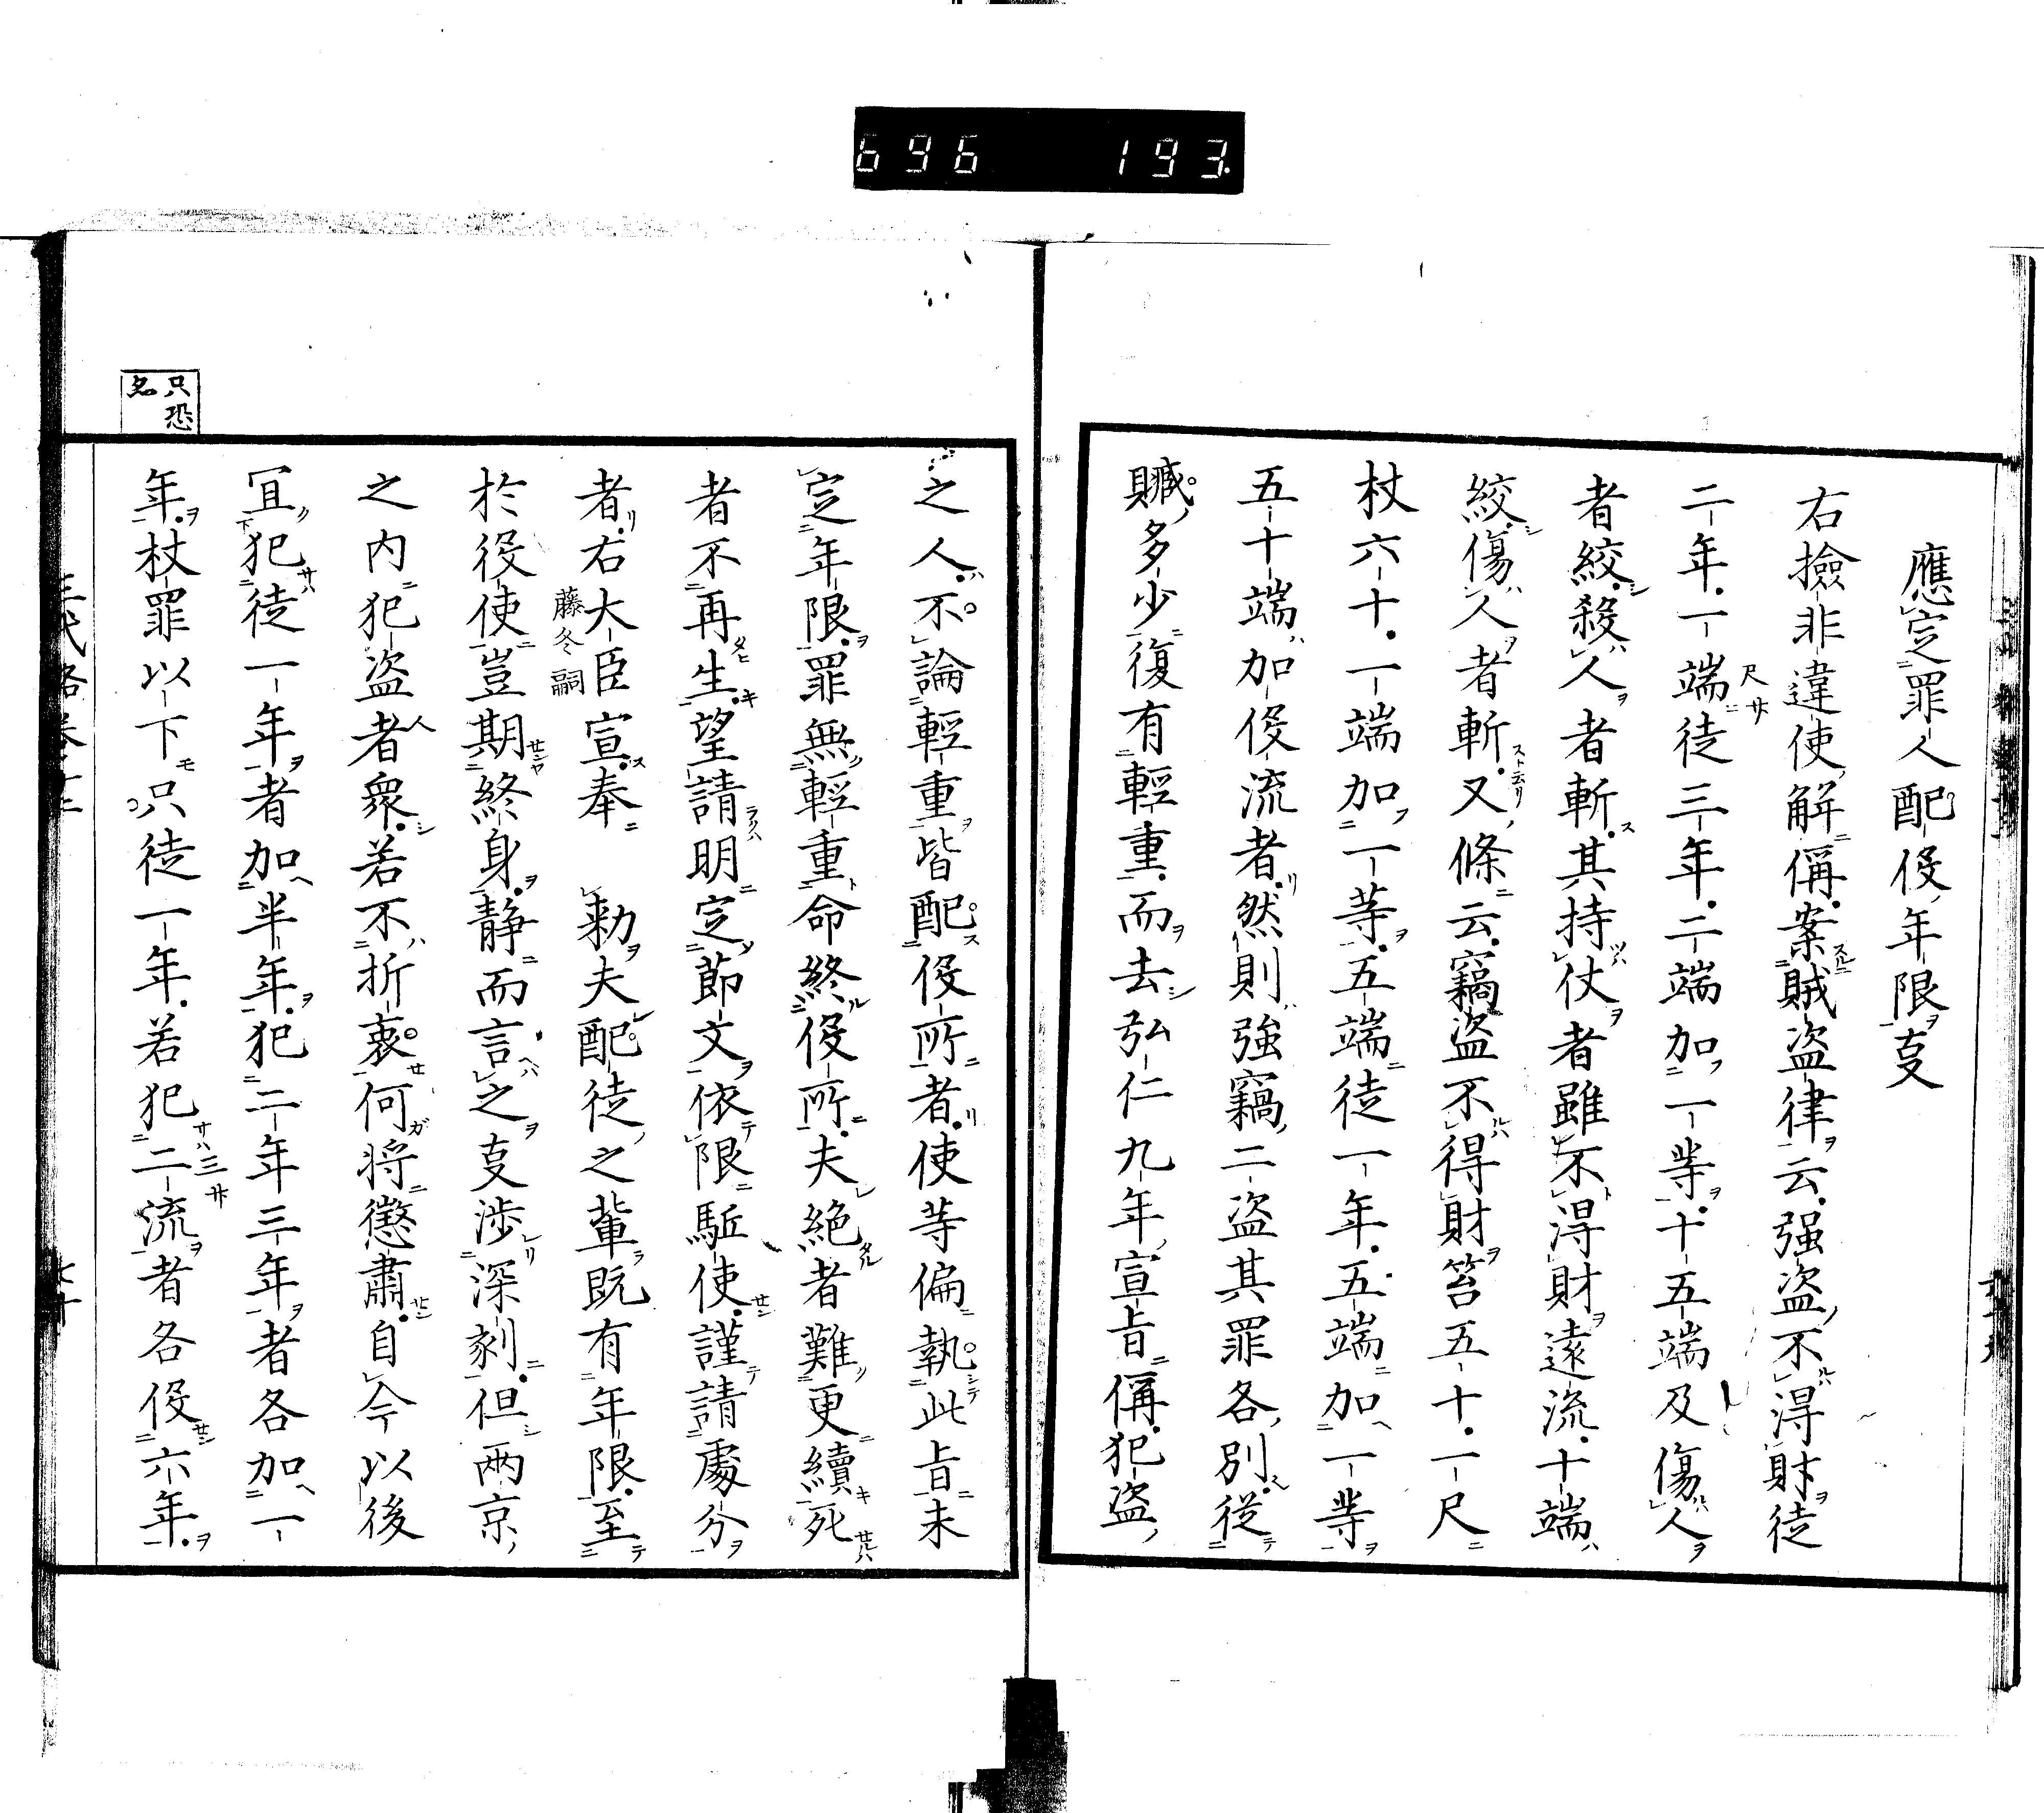 696 193
應定罪人配役年限㕝
右撿非違使解偁案賊盗律云强盗不得財徒
二年一端徒三年二端加一等十五端及傷人
者絞殺人者斬其持仗者雖不得財遠流十端
絞傷人者斬又條云竊盗不得財笞五十一尺
杖六十一端加一等五端徒一年五端加一等
五十端加役流者然則強竊二盗其罪各別從
贓多少復有輕重而去弘仁九年宣旨偁犯盗
之人不論輕重皆配役所者使等偏執此旨未
定年限罪無輕重命終役所夫絶者難更續死
者不再生望請明定節文依限駈使謹請處分
者右大臣宣奉 勅夫配徒之輩既有年限至
藤冬嗣
於役使豈期終身静而言之㕝渉深刻但兩京
之内犯盗者衆若不折衷何將懲肅自今以後
冝犯徒一年者加半年犯二年三年者各加一
年杖罪以下只徒一年若犯二流者各役六年
只恐
名